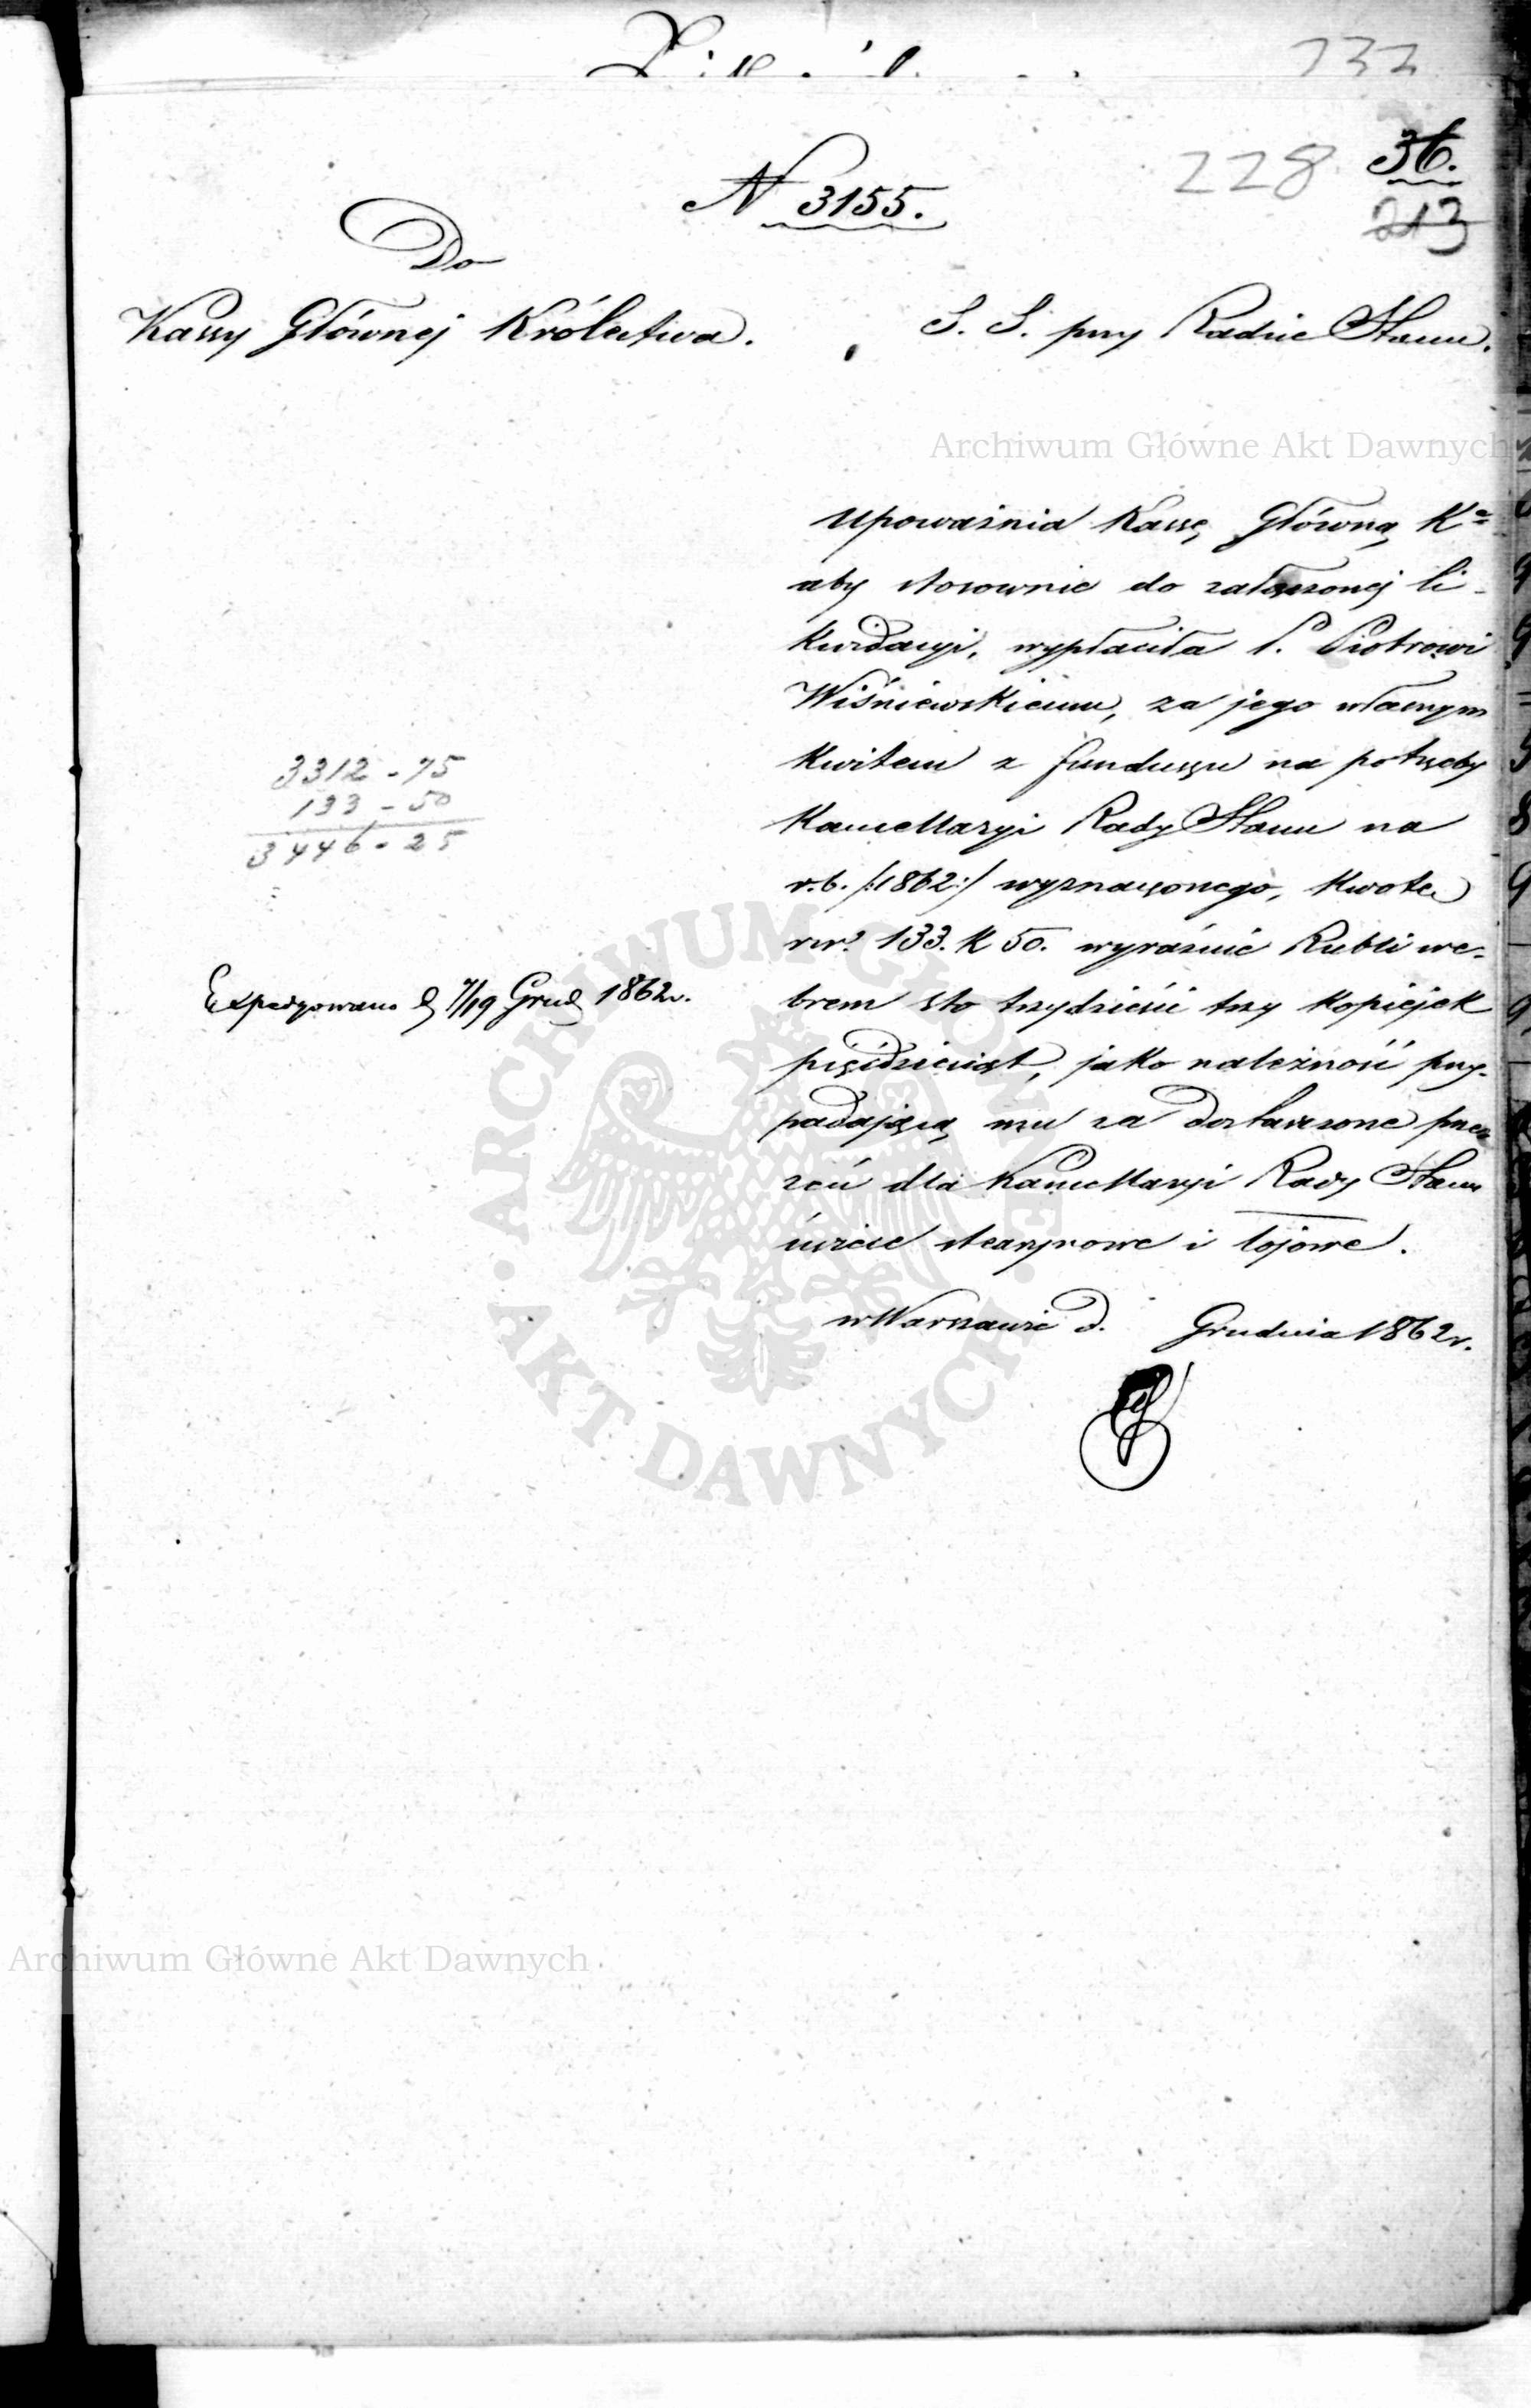 232
228 36.
213
N 3155.
Do
Kassy Głównej Królestwa.
S. S. przy Radzie Stanu.
Archiwum Główne Akt Dawnych
upoważnia Kassę Główną Kª
aby stosownie do załączonej li-
kwidacyi, wypłaciła P. Piotrowi
Wiśniewskiemu, za jego własnym
kwitem z funduszu na potrzeby
Kancellaryi Rady Stanu na
r.b. /:1862:/ wyznaczonego, kwotę
rsr. 133. k 50. wyraźnie Rubli sre-
brem sto trzydzieści trzy kopiejek
pięćdziesiąt, jako należność przy-
padającą mu za dostarczone prze-
zeń dla Kancellaryi Rady Stanu
świece stearynowe i łojowe.
w Warszawie d. Grudnia 1862 r.
3312 - 75
133 - 50
3446 - 25
Expedyowano d 7/19 Grud 1862 r.
ARCHIWUM GŁÓWNE
AKT DAWNYCH
Archiwum Główne Akt Dawnych